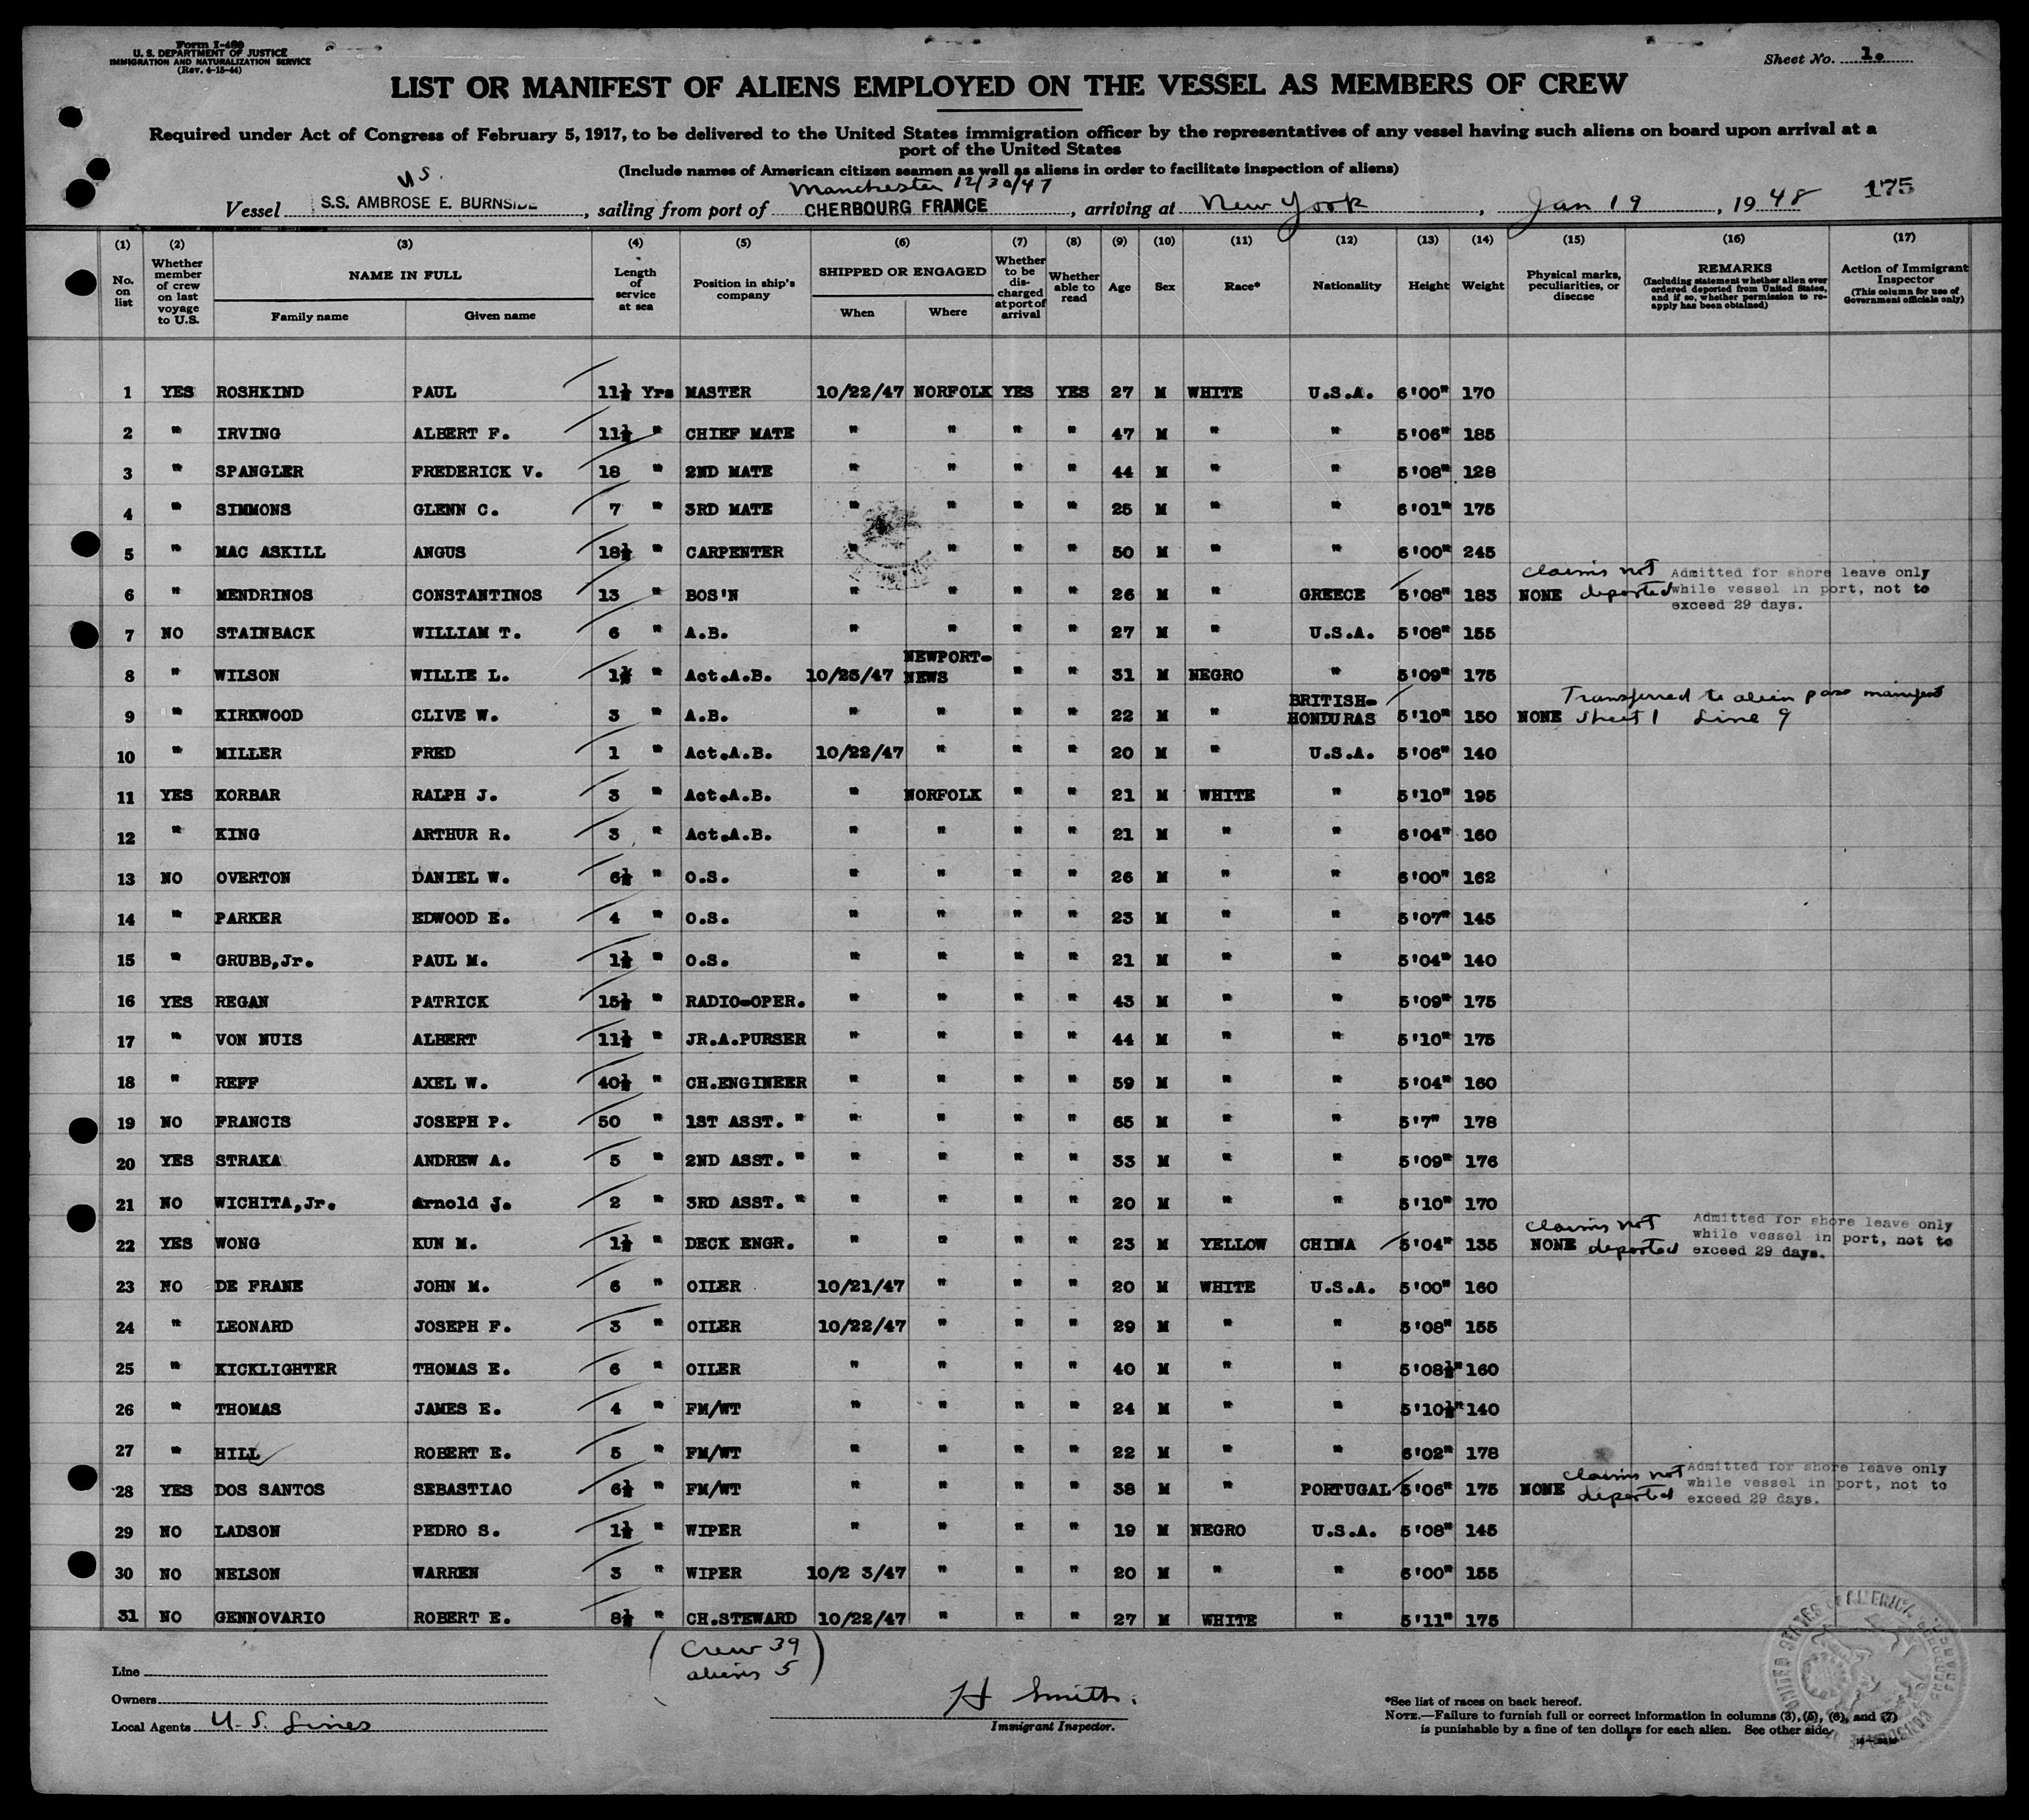 Form I-480
U. S. DEPARTMENT OF JUSTICE
IMMIGRATION AND NATURALIZATION SERVICE
(Rev. 4-15-44)
Sheet No. 1.
LIST OR MANIFEST OF ALIENS EMPLOYED ON THE VESSEL AS MEMBERS OF CREW
Required under Act of Congress of February 5, 1917, to be delivered to the United States immigration officer by the representatives of any vessel having such aliens on board upon arrival at a
port of the United States
(Include names of American citizen seamen as well as aliens in order to facilitate inspection of aliens)
US. Manchester 12/30/47
Vessel S.S. AMBROSE E. BURNSIDE, sailing from port of CHERBOURG FRANCE, arriving at New York, Jan 19, 1948 175
(1) (2) (3) (4) (5) (6) (7) (8) (9) (10) (11) (12) (13) (14) (15) (16) (17)
No. on list
Whether member of crew on last voyage to U.S.
NAME IN FULL
Family name Given name
Length of service at sea
Position in ship's company
SHIPPED OR ENGAGED
When Where
Whether to be discharged at port of arrival
Whether able to read
Age Sex Race* Nationality Height Weight
Physical marks, peculiarities, or disease
REMARKS
(Including statement whether alien ever ordered deported from United States, and if so, whether permission to reapply has been obtained)
Action of Immigrant Inspector
(This column for use of Government officials only)
1 YES ROSHKIND PAUL 11½ Yrs MASTER 10/22/47 NORFOLK YES YES 27 M WHITE U.S.A. 6'00" 170
2 " IRVING ALBERT F. 11½ " CHIEF MATE " " " " 47 M " " 5'06" 185
3 " SPANGLER FREDERICK V. 18 " 2ND MATE " " " " 44 M " " 5'08" 128
4 " SIMMONS GLENN C. 7 " 3RD MATE " " " " 25 M " " 6'01" 175
5 " MAC ASKILL ANGUS 18½ " CARPENTER " " " " 50 M " " 6'00" 245
6 " MENDRINOS CONSTANTINOS 13 " BOS'N " " " " 26 M " GREECE 5'08" 183 NONE claims not deported Admitted for shore leave only while vessel in port, not to exceed 29 days.
7 NO STAINBACK WILLIAM T. 6 " A.B. " " " " 27 M " U.S.A. 5'08" 155
8 " WILSON WILLIE L. 1½ " Act.A.B. 10/23/47 NEWPORT-NEWS " " 31 M NEGRO " 5'09" 175
9 " KIRKWOOD CLIVE W. 3 " A.B. " " " " 22 M " BRITISH-HONDURAS 5'10" 150 NONE Transferred to alien pass manifest sheet 1 Line 9
10 " MILLER FRED 1 " Act.A.B. 10/22/47 " " " 20 M " U.S.A. 5'06" 140
11 YES KORBAR RALPH J. 3 " Act.A.B. " NORFOLK " " 21 M WHITE " 5'10" 195
12 " KING ARTHUR R. 3 " Act.A.B. " " " " 21 M " " 6'04" 160
13 NO OVERTON DANIEL W. 6½ " O.S. " " " " 26 M " " 6'00" 162
14 " PARKER EDWOOD E. 4 " O.S. " " " " 23 M " " 5'07" 145
15 " GRUBB,Jr. PAUL M. 1½ " O.S. " " " " 21 M " " 5'04" 140
16 YES REGAN PATRICK 15½ " RADIO-OPER. " " " " 43 M " " 5'09" 175
17 " VON NUIS ALBERT 11½ " JR.A.PURSER " " " " 44 M " " 5'10" 175
18 " REFF AXEL W. 40½ " CH.ENGINEER " " " " 59 M " " 5'04" 160
19 NO FRANCIS JOSEPH P. 50 " 1ST ASST. " " " " " 65 M " " 5'7" 178
20 YES STRAKA ANDREW A. 5 " 2ND ASST. " " " " " 33 M " " 5'09" 176
21 NO WICHITA,Jr. Arnold J. 2 " 3RD ASST. " " " " " 20 M " " 5'10" 170
22 YES WONG KUN M. 1½ " DECK ENGR. " " " " 23 M YELLOW CHINA 5'04" 135 NONE claims not deported Admitted for shore leave only while vessel in port, not to exceed 29 days.
23 NO DE FRANE JOHN M. 6 " OILER 10/21/47 " " " 20 M WHITE U.S.A. 5'00" 160
24 " LEONARD JOSEPH F. 3 " OILER 10/22/47 " " " 29 M " " 5'08" 155
25 " KICKLIGHTER THOMAS E. 6 " OILER " " " " 40 M " " 5'08½" 160
26 " THOMAS JAMES E. 4 " FM/WT " " " " 24 M " " 5'10½" 140
27 " HILL ROBERT E. 5 " FM/WT " " " " 22 M " " 6'02" 178
28 YES DOS SANTOS SEBASTIAO 6½ " FM/WT " " " " 38 M " PORTUGAL 5'06" 175 NONE claims not deported Admitted for shore leave only while vessel in port, not to exceed 29 days.
29 NO LADSON PEDRO S. 1½ " WIPER " " " " 19 M NEGRO U.S.A. 5'08" 145
30 NO NELSON WARREN 3 " WIPER 10/2 3/47 " " " 20 M " " 6'00" 155
31 NO GENNOVARIO ROBERT E. 8½ " CH.STEWARD 10/22/47 " " " 27 M WHITE " 5'11" 175
(Crew 39
aliens 5)
Line
Owners
Local Agents U.S. Lines
H Smith.
Immigrant Inspector.
*See list of races on back hereof.
NOTE.—Failure to furnish full or correct information in columns (3), (5), (6), and (7)
is punishable by a fine of ten dollars for each alien. See other side.
UNITED STATES OF AMERICA